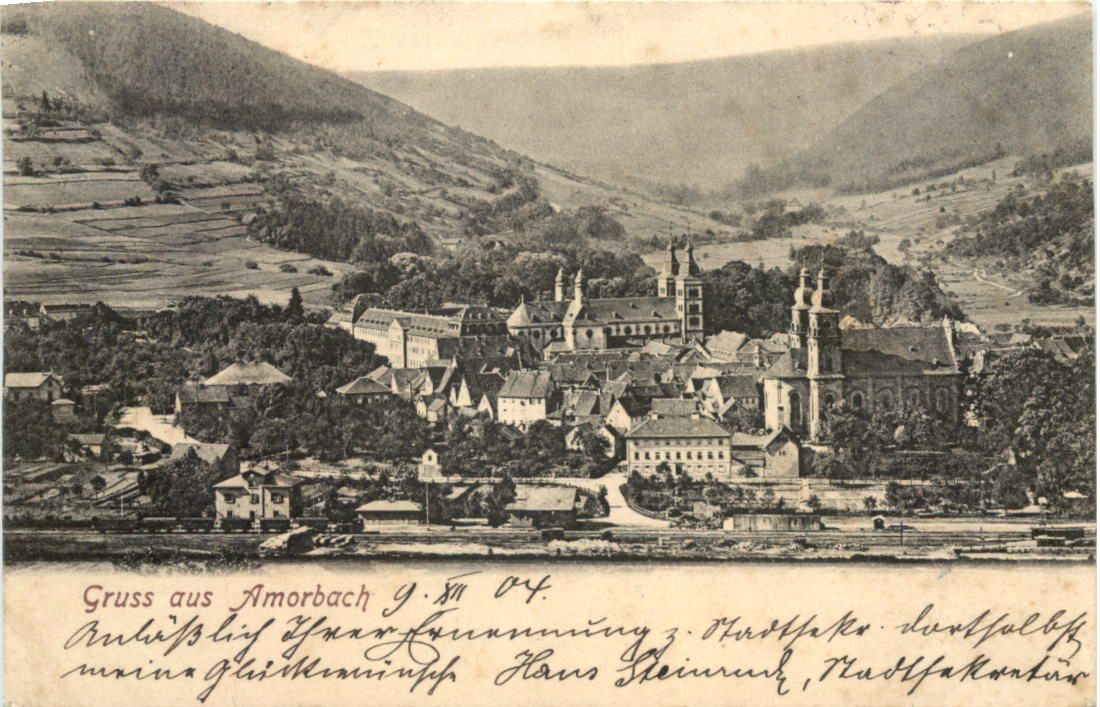 Gruss aus Amorbach 9. XII 04.
Anläßlich Ihrer Ernennung z. Stadtsekr. dortselbst
meine Glückwünsche Hans Steinruck, Stadtsekretär